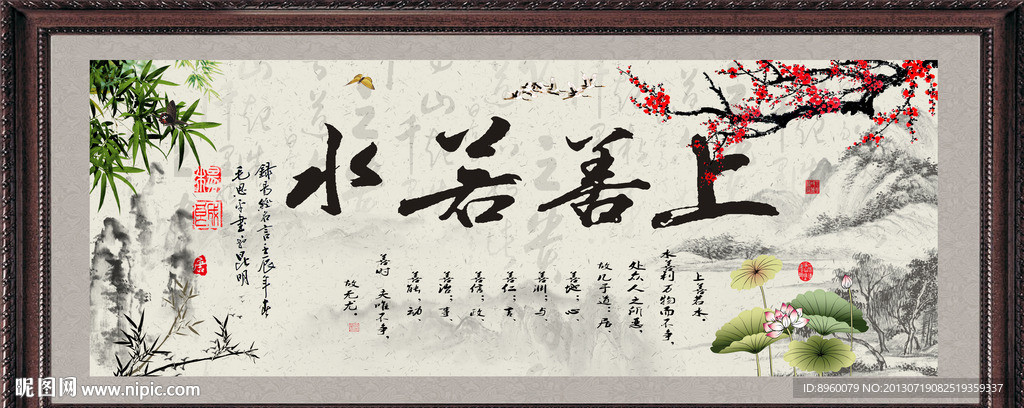 上善若水
上善若水，
水善利万物而不争，
处众人之所恶，
故几于道：居
善地；心
善渊；与
善仁；言
善信；政
善治；事
善能；动
善时 夫唯不争，
故无尤。
名言壬辰年春
昆明
昵图网 www.nipic.com
ID:8960079 NO:20130719082519359337